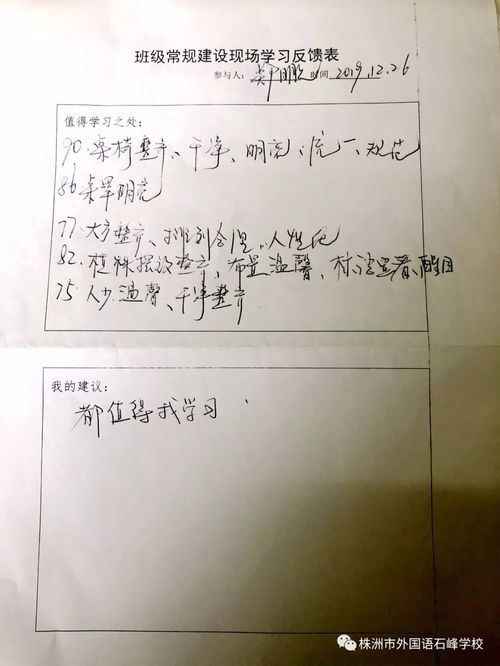 班级常规建设现场学习反馈表
参与人： 时间 2019.12.26
值得学习之处：
90. 桌椅整齐、干净、明亮、统一、规范
86 桌罩明亮
77. 大方整齐、排列合理、人性化
82. 植株摆放整齐、布置温馨、标语显著、醒目
75 人少温馨、干净整齐
我的建议：
都值得我学习.
株洲市外国语石峰学校